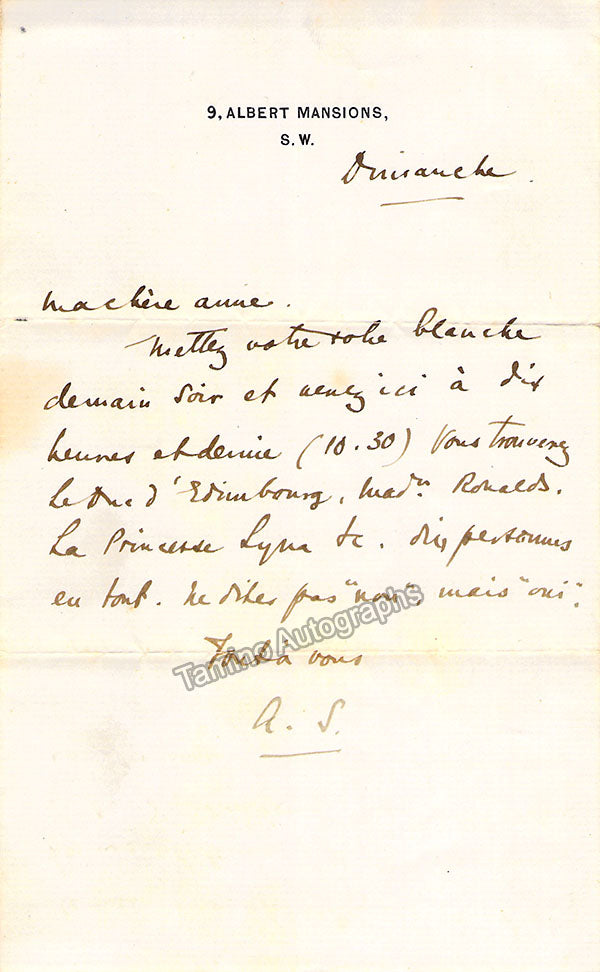 9, ALBERT MANSIONS,
S. W.
Dimanche.
Ma chère amie.
Mettez votre robe blanche
demain soir et venez ici à dix
heures et demie (10.30) Vous trouverez
Le Duc d'Edimbourg, Madᵐ Ronalds.
La Princesse &c. dix personnes
en tout. Ne dites pas "non", mais "oui".
Tout à vous
A. S.
Tamino Autographs